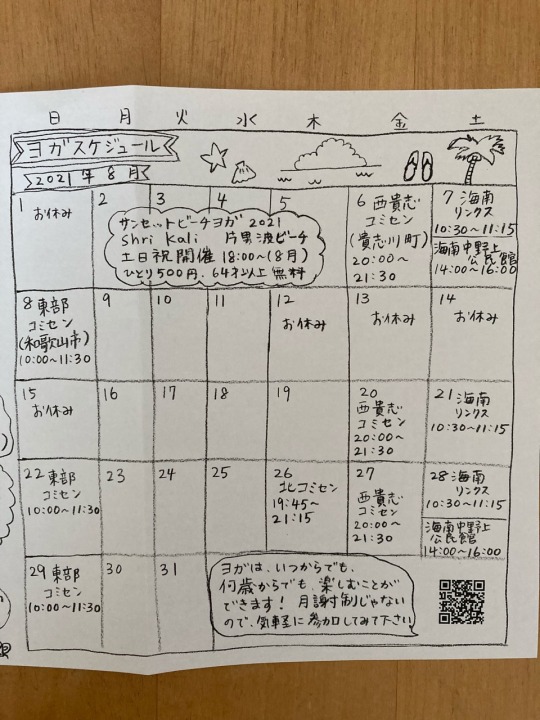 日 月 火 水 木 金 土
ヨガスケジュール
2021年8月
1 お休み
2
3
4
5
サンセットビーチヨガ 2021
Shri Kali 片男波ビーチ
土日祝開催 18:00~(8月)
ひとり500円、64才以上無料
6 西貴志
コミセン
(貴志川町)
20:00~
21:30
7 海南
リンクス
10:30~11:15
海南中野上
公民館
14:00~16:00
8 東部
コミセン
(和歌山市)
10:00~11:30
9
10
11
12
お休み
13
お休み
14
お休み
15
お休み
16
17
18
19
20
西貴志
コミセン
20:00~
21:30
21 海南
リンクス
10:30~11:15
22 東部
コミセン
10:00~11:30
23
24
25
26
北コミセン
19:45~
21:15
27
西貴志
コミセン
20:00~
21:30
28 海南
リンクス
10:30~11:15
海南中野上
公民館
14:00~16:00
29 東部
コミセン
10:00~11:30
30
31
ヨガは、いつからでも、
何歳からでも、楽しむことが
できます! 月謝制じゃない
ので、気軽に参加してみて下さい